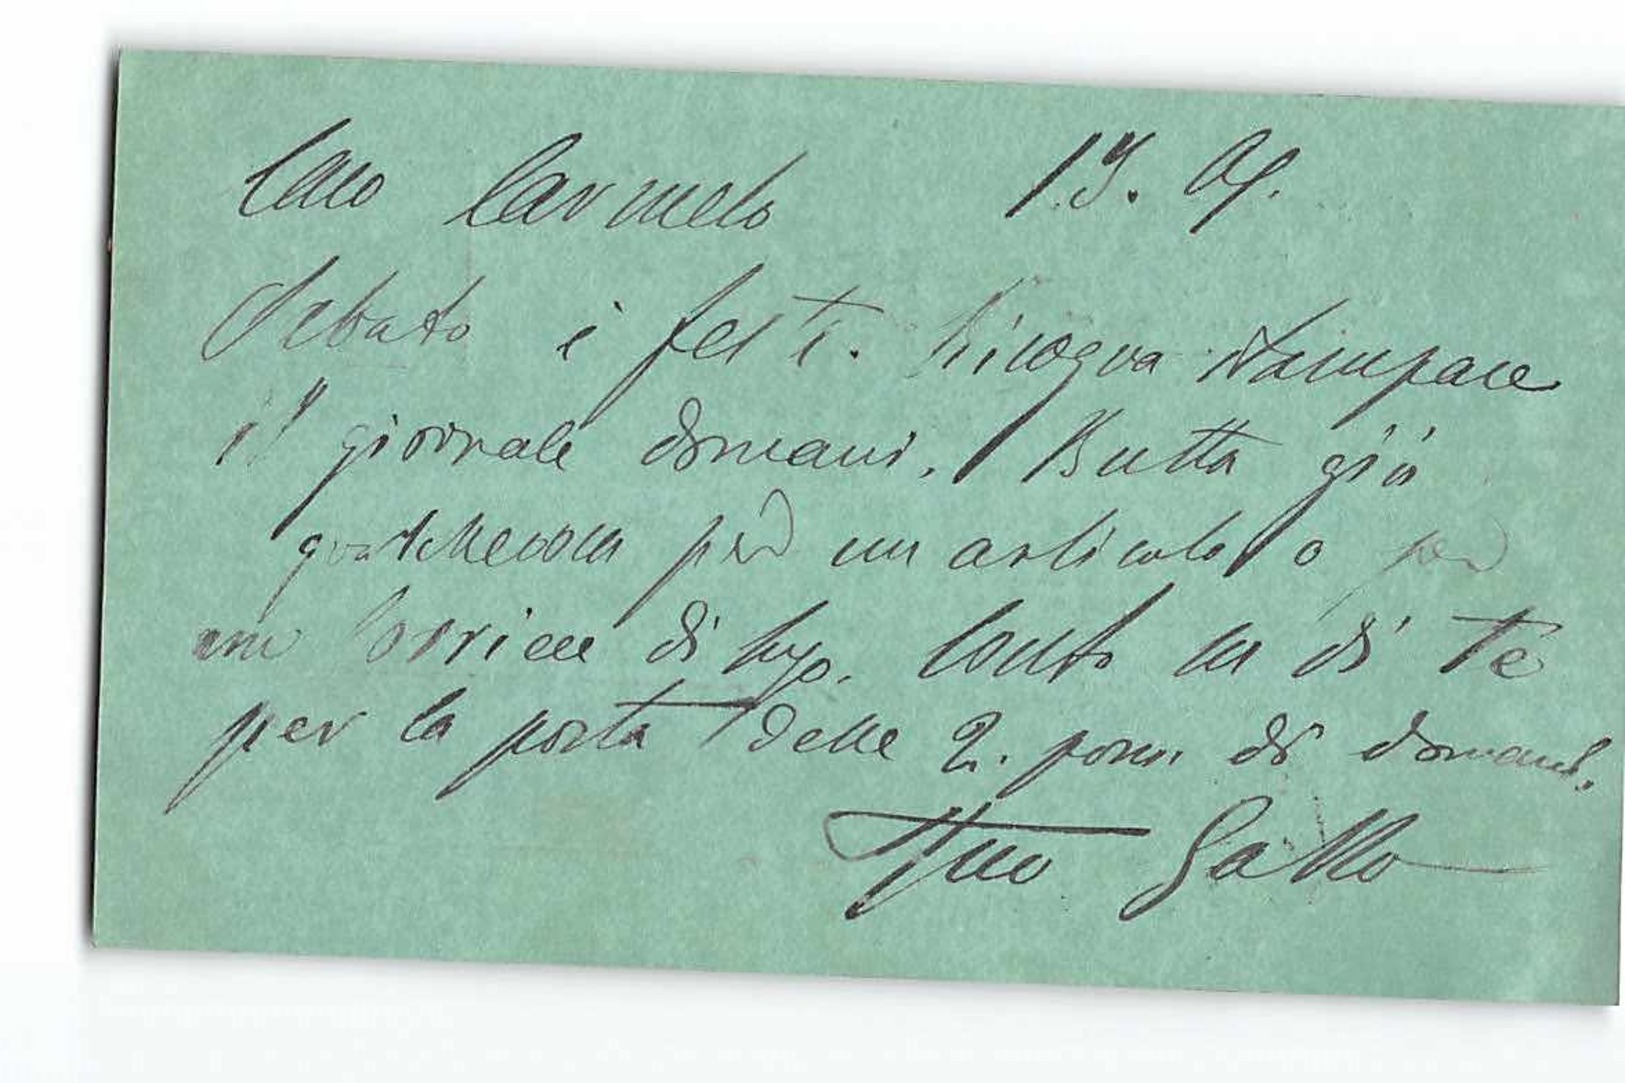 Caro Carmelo 13. Ap.
Sabato è festa. Bisogna stampare
il giornale domani. Butta giù
qualchecosa per un articolo o per
un Corriere di Conto su di te
per la posta delle 2. pom. di domani.
Tuo Gallo